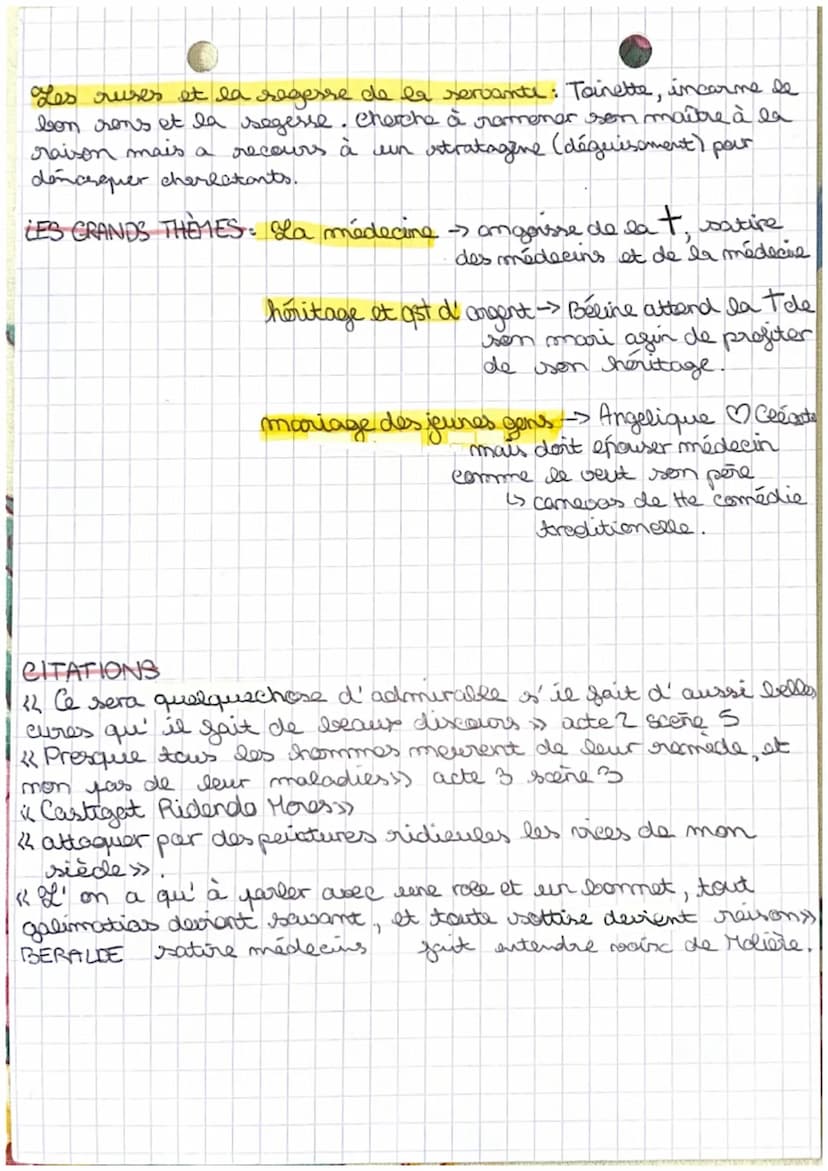 Les ruses et la sagesse de la servante : Toinette, incarne le
bon sens et la sagesse. Cherche à ramener son maître à la
raison mais a recours à un stratagène (déguisement) pour
démasquer charlatants.
LES GRANDS THÈMES : La médecine → angoisse de la †, satire
des médecins et de la médecine
héritage et qst d'argent → Béline attend la † de
son mari afin de profiter
de son héritage.
mariage des jeunes gens → Angelique ♡ Cléante
mais doit épouser médecin
comme le veut son père
↳ canevas de tte comédie
traditionelle.
CITATIONS
« Ce sera quelquechose d'admirable s'il fait d'aussi belles
cures qu'il fait de beaux discours » acte 2 scène 5
« Presque tous les hommes meurent de leur remède, et
non pas de leur maladies » acte 3 scène 3
« Castigat Ridendo Mores »
« attaquer par des peintures ridicules les vices de mon
siècle ».
« L'on a qu'à parler avec une robe et un bonnet, tout
galimatias devient savant, et toute sottise devient raison »
BERALDE satire médecins fait entendre voix de Molière.